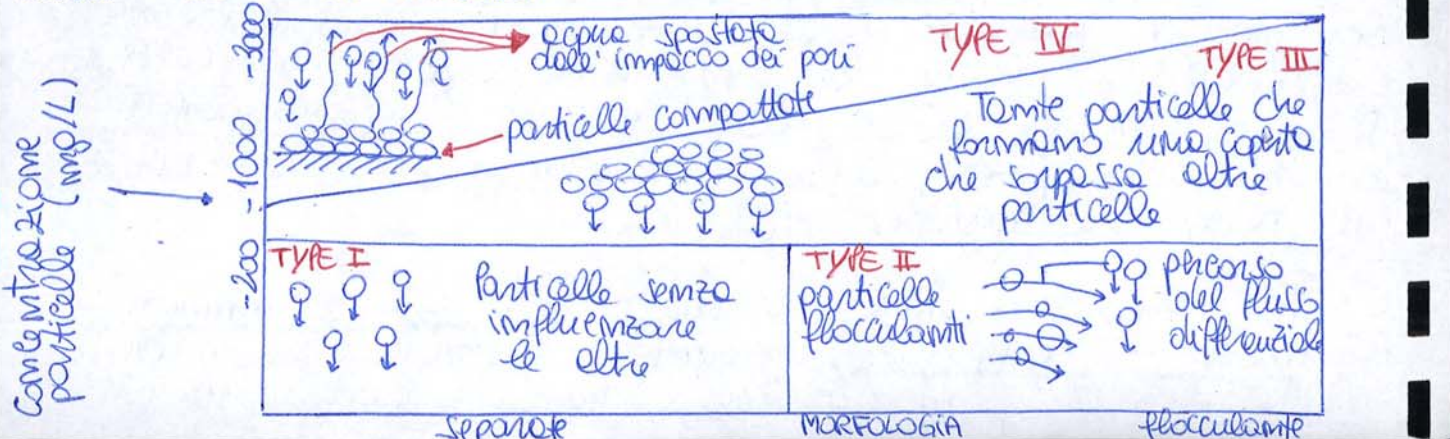 Concentrazione
particelle (mg/L)
~3000
~1000
~200
acqua spostata
dall'impacco dei pori
particelle compattate
TYPE IV
TYPE III
Tante particelle che
formano una coperta
che sorpassa altre
particelle
TYPE I
Particelle senza
influenzare
le altre
TYPE II
particelle
flocculanti
percorso
del flusso
differenziale
separate
MORFOLOGIA
flocculante